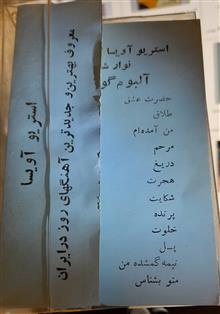 استریو آویسا
نوار
آلبوم
حضرت عشق
طلاق
من آمده‌ام
مرحم
دریغ
هجرت
شکایت
پرنده
خلوت
پل
نیمه گمشده من
منو بشناس
معروف بهترین و جدیدترین آهنگهای روز در ایران
استریو آویسا